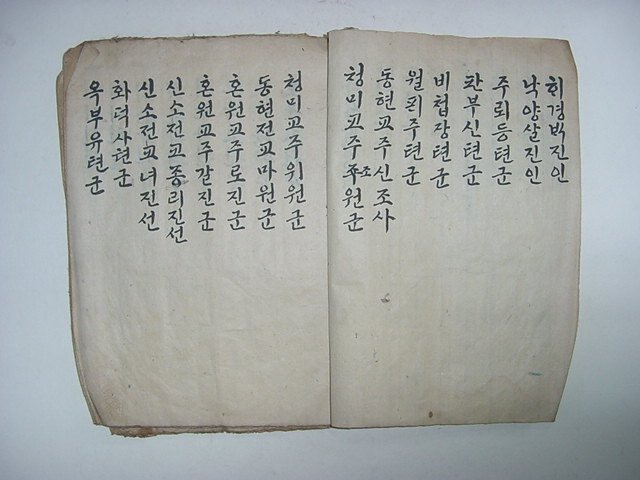 회경박진인
낙양살진인
주뢰등텬군
판부신텬군
비첩장텬군
월패주텬군
동현교주신조사
청미교주조원군
청미교주위원군
동현전교마원군
혼원교주로진군
혼원교주갈진군
신소전교종리진선
신소전교녀진선
화덕사텬군
옥부유텬군